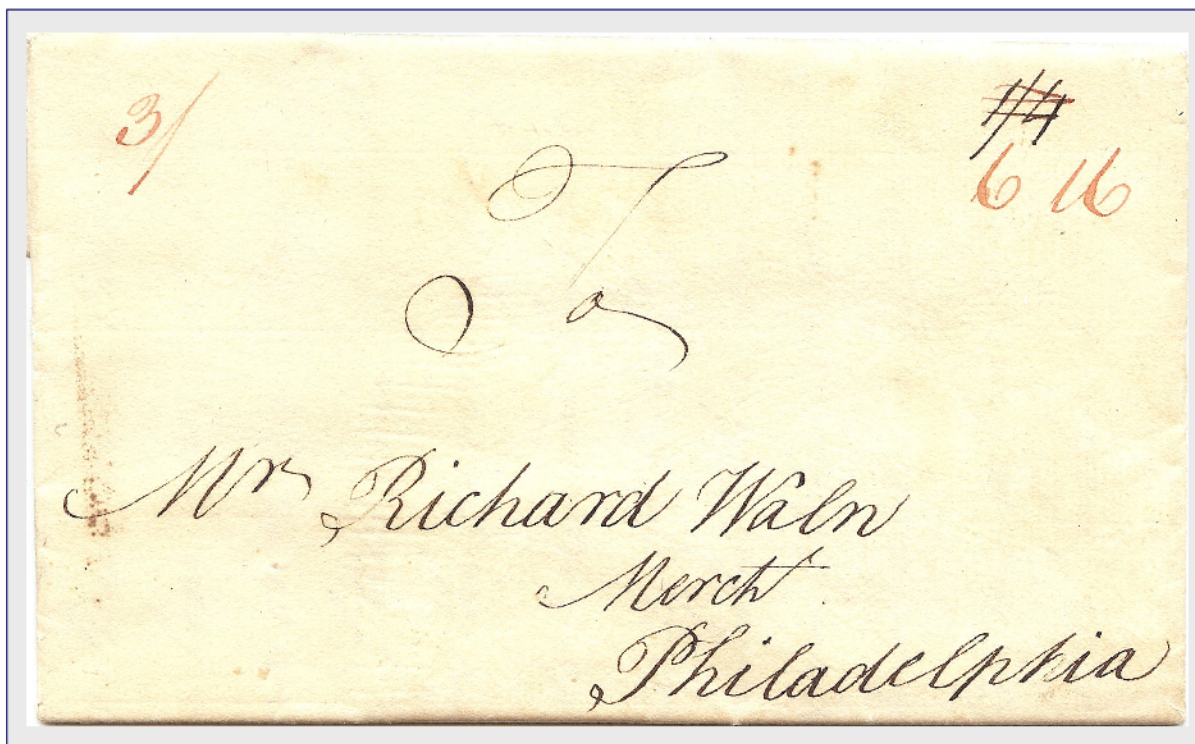 3/ 1/4
6 16
To
Mr Richard Waln
Mercht
Philadelphia